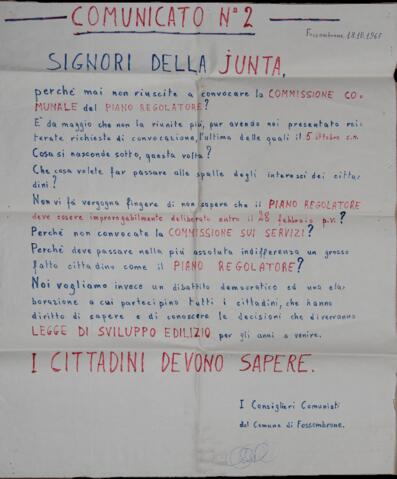 COMUNICATO N° 2
Fossombrone, 18.10.1968
SIGNORI DELLA JUNTA,
perché mai non riuscite a convocare la COMMISSIONE CO-
MUNALE del PIANO REGOLATORE?
E' da maggio che non la riunite più, pur avendo noi presentato rei-
terate richieste di convocazione, l'ultima delle quali il 5 ottobre c.m.
Cosa si nasconde sotto, questa volta?
Che cosa volete far passare alle spalle degli interessi dei citta-
dini?
Non vi fà vergogna fingere di non sapere che il PIANO REGOLATORE
deve essere improrogabilmente deliberato entro il 28 febbraio p.v.?
Perché non convocate la COMMISSIONE SUI SERVIZI?
Perché deve passare nella più assoluta indifferenza un grosso
fatto cittadino come il PIANO REGOLATORE?
Noi vogliamo invece un dibattito democratico ed una ela-
borazione a cui partecipino tutti i cittadini, che hanno
diritto di sapere e di conoscere le decisioni che diverranno
LEGGE DI SVILUPPO EDILIZIO per gli anni a venire.
I CITTADINI DEVONO SAPERE.
I Consiglieri Comunisti
del Comune di Fossombrone.